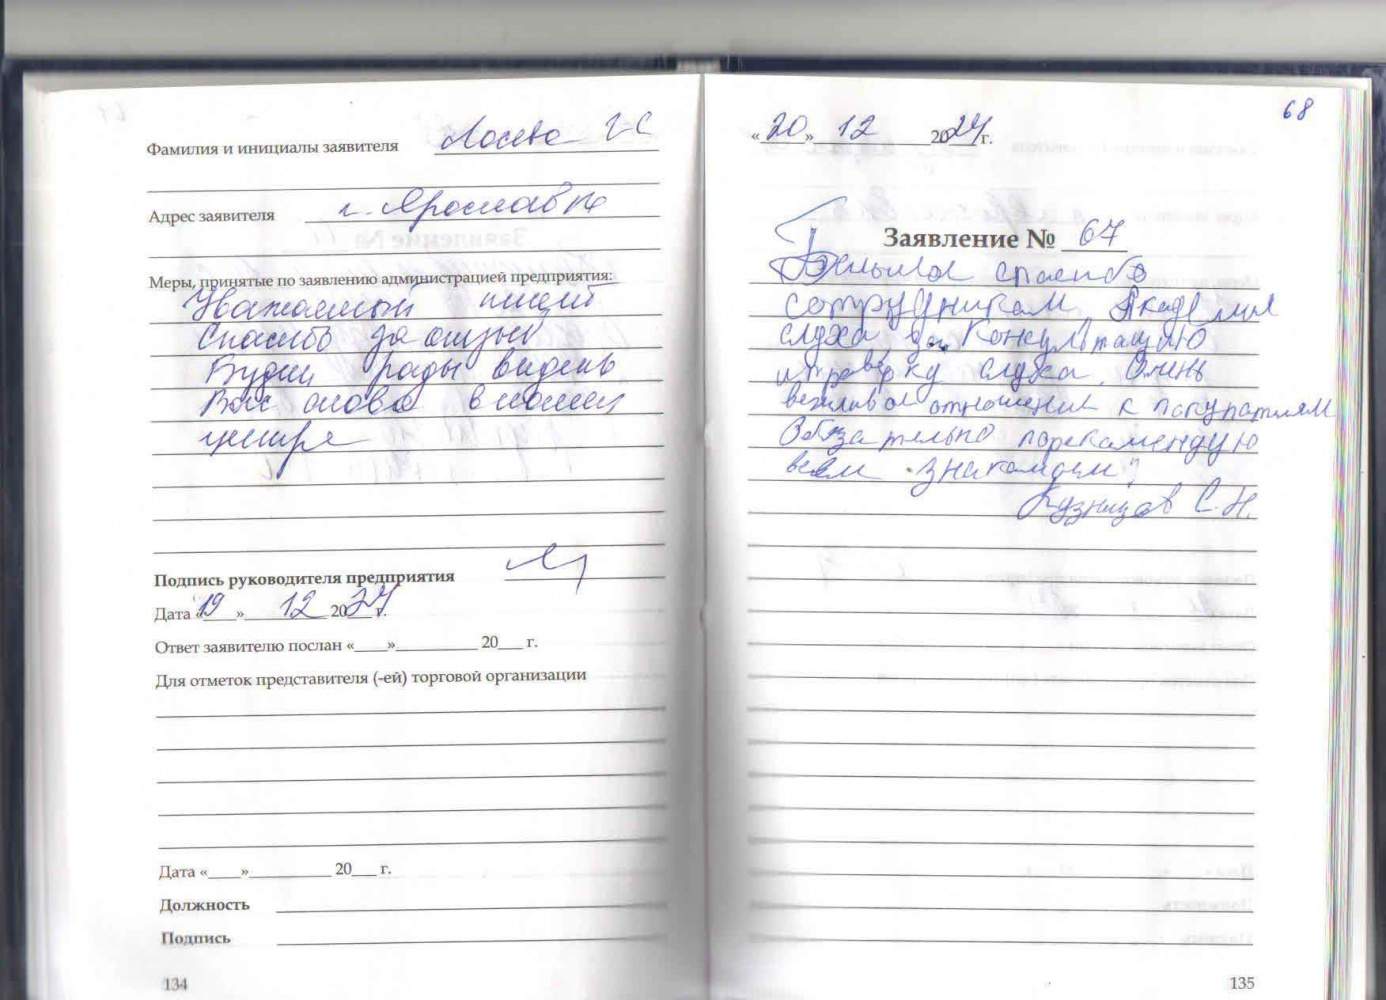 Фамилия и инициалы заявителя Лосева Г С
Адрес заявителя г. Ярославль
Меры, принятые по заявлению администрацией предприятия:
Уважаемый
Спасибо за отзыв
Будем рады видеть
Вас снова в нашем
центре
Подпись руководителя предприятия
Дата «19» 12 2024 г.
Ответ заявителю послан «___»__________ 20___ г.
Для отметок представителя (-ей) торговой организации
Дата «____»__________ 20___ г.
Должность
Подпись
134
68
«20» 12 2024г.
Заявление № 67
Большое спасибо
сотрудникам Академия
слуха за консультацию
и проверку слуха. Очень
вежливое отношение к покупателям
Обязательно порекомендую
всем знакомым!
Кузнецов С.Н.
135